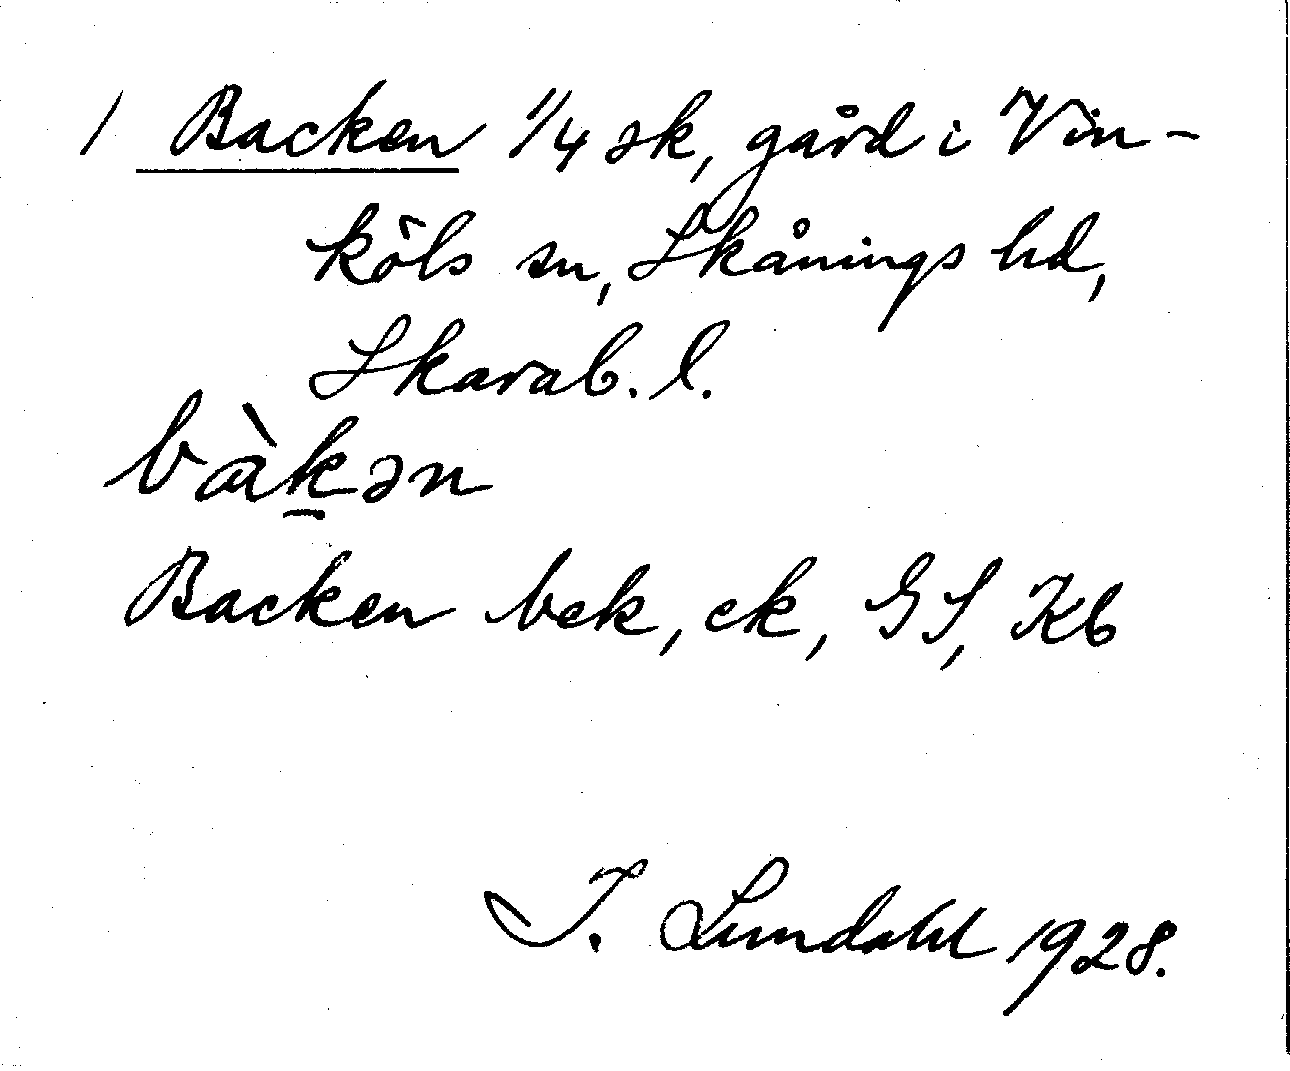 1 Backen 1/4 sk, gård i Vin-
köls sn, Skånings hd,
Skarab. l.
bàk̠ən
Backen bek, ek, GS, Kb
I. Lundahl 1928.